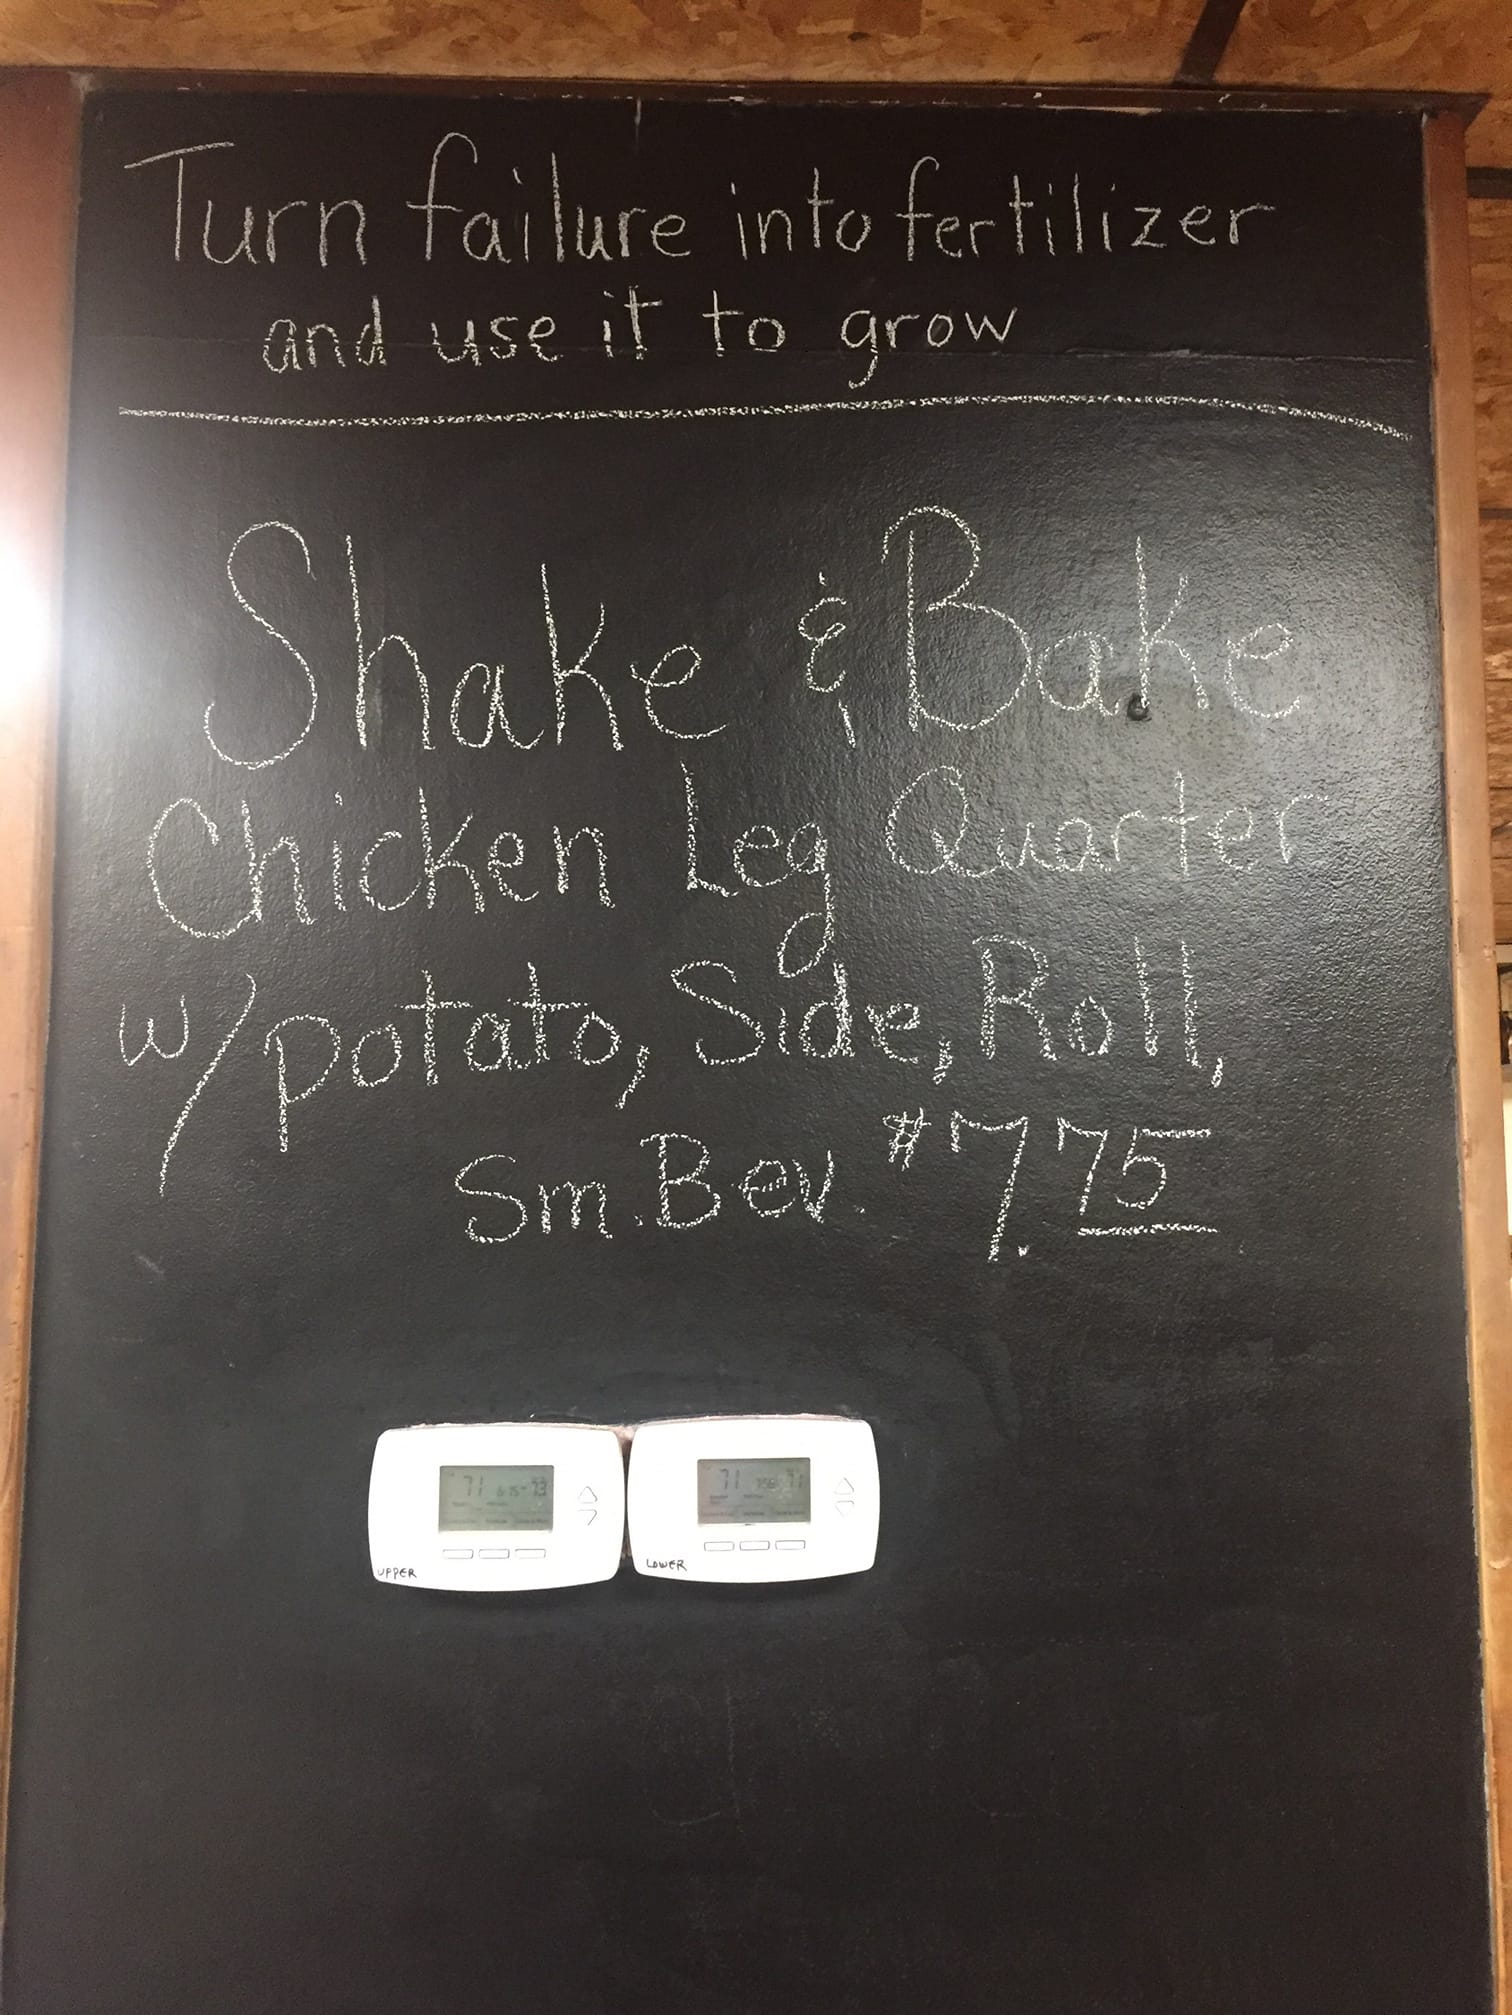 Turn failure into fertilizer
and use it to grow
Shake & Bake
Chicken Leg Quarter
w/ potato, Side, Roll,
Sm. Bev. $7.75
71 73
71 71
UPPER
LOWER